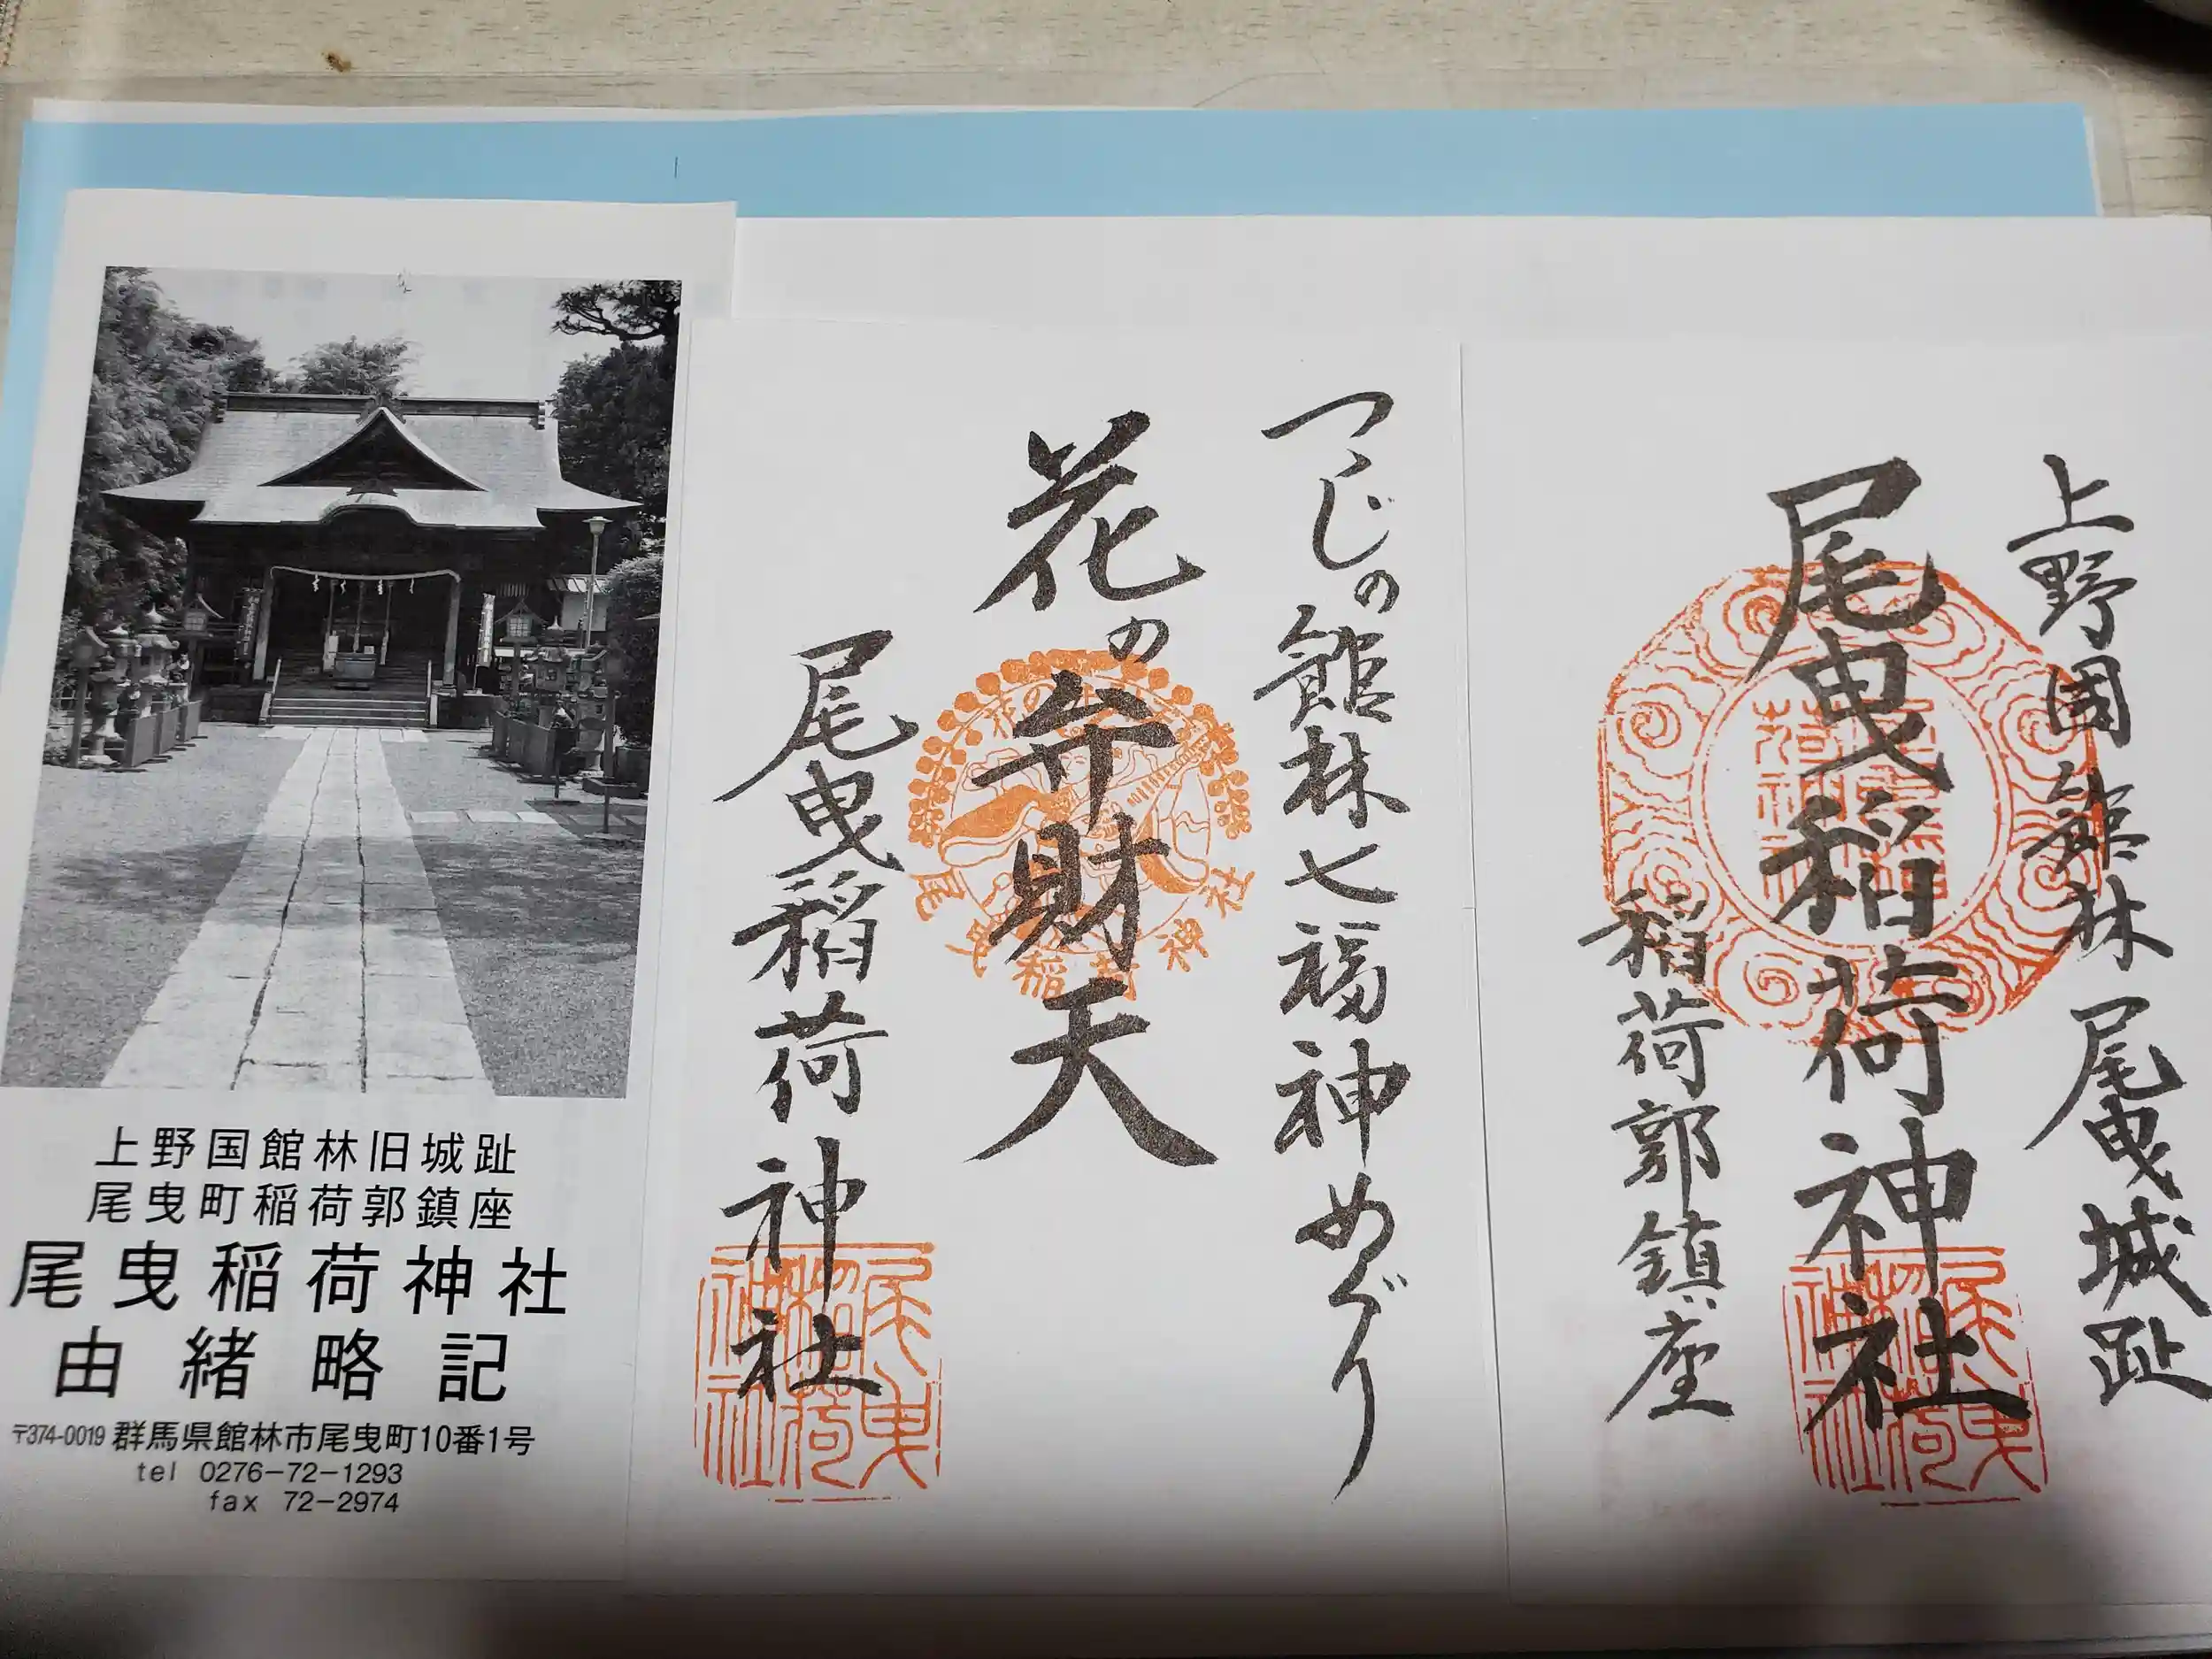 上野国館林旧城趾
尾曳町稲荷郭鎮座
尾曳稲荷神社
由緒略記
〒374-0019 群馬県館林市尾曳町10番1号
tel 0276-72-1293
fax 72-2974
つゝじの館林七福神めぐり
花の弁財天
尾曳稲荷神社
尾曳稲荷神社
尾曳稲荷神社
上野国館林尾曳城趾
尾曳稲荷神社
稲荷郭鎮座
尾曳稲荷神社